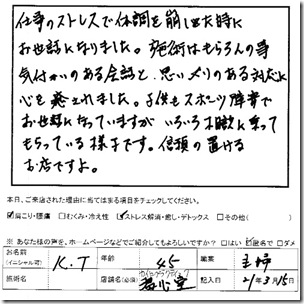 仕事のストレスで体調を崩した時に
お世話になりました。施術はもちろんの事
気付かいのある会話と、思いやりのある対応に
心を癒されました。子供もスポーツ障害で
お世話になっていますが いろいろ相談に乗って
もらっている様子です。信頼の置ける
お店ですよ。
本日、ご来店された理由に当てはまる項目をチェックしてください。
☑肩こり・腰痛 □むくみ・冷え性 ☑ストレス解消・癒し・デトックス □その他( )
※ あなた様の声を、ホームページなどでご紹介してもよろしいですか? □はい ☑匿名で □ダメ
お名前 (イニシャル可) K.T 年齢 45 職業 主婦
施術名 店舗名(必須) 若心堂 記入日 21年3月15日